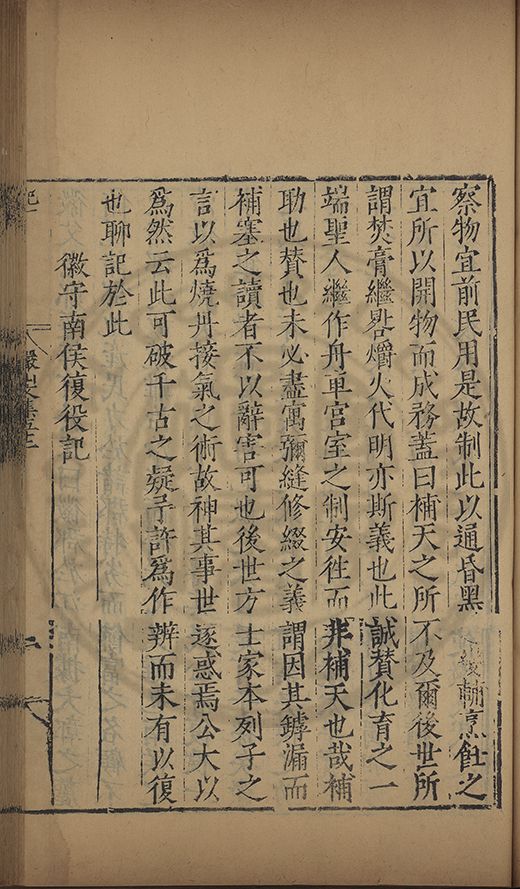 察物宜前民用是故制此以通昏黑輔烹飪之
宜所以開物而成務蓋曰補天之所不及爾後世所
謂焚膏繼晷爝火代明亦斯義也此誠贊化育之一
端聖人繼作舟車宮室之制安徃而非補天也哉補
助也賛也未必盡寓彌縫修綴之義謂因其罅漏而
補塞之讀者不以辭害可也後世方士家本列子之
言以爲燒丹接氣之術故神其事世遂惑焉公大以
爲然云此可破千古之疑予許爲作辨而未有以復
也聊記於此
徽守南侯復役記